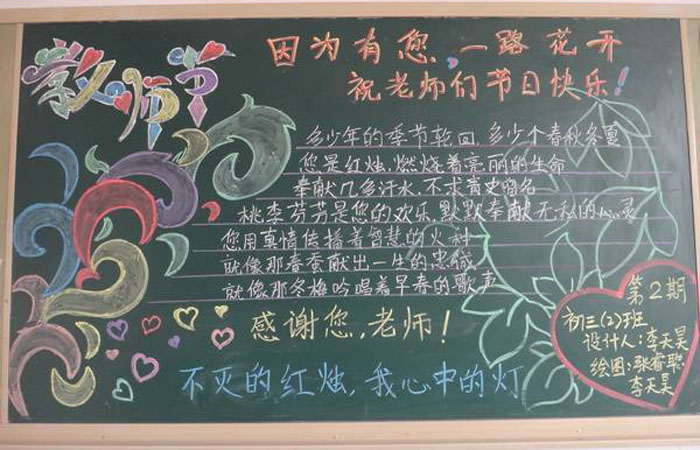 教师节
因为有您,一路花开
祝老师们节日快乐!
多少年的季节轮回,多少个春秋冬夏
您是红烛,燃烧着亮丽的生命
奉献几多汗水,不求青史留名
桃李芬芳是您的欢乐,默默奉献无私的心灵
您用真情传播着智慧的火种
就像那春蚕献出一生的忠诚
就像那冬梅吟唱着早春的歌声
感谢您,老师!
不灭的红烛,我心中的灯
第2期
初三(2)班
设计人:李天昊
绘图:张睿聪
李天昊